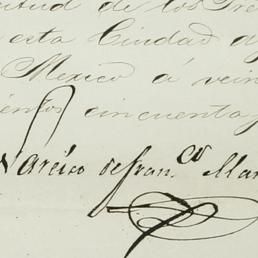 itud de los
esta Ciudad d
Mexico á vein
ientos cincuenta
Narciso de Fran.co Mar